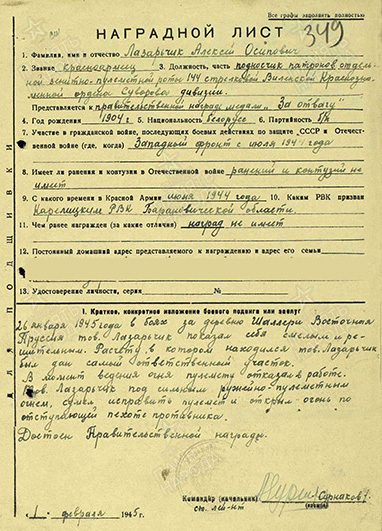 Все графы заполнить полностью
НАГРАДНОЙ ЛИСТ 349
1. Фамилия, имя и отчество Лазарчик Алексей Осипович
2. Звание красноармеец 3. Должность, часть подносчик патронов отдель-
ной зенитно-пулеметной роты 144 стрелковой Виленской Краснозна-
менной ордена Суворова дивизии.
Представляется к правительственной награде медали „За отвагу"
4. Год рождения 1904 г. 5. Национальность белорус 6. Партийность б/п
7. Участие в гражданской войне, последующих боевых действиях по защите СССР и Отечест-
венной войне (где, когда) Западный фронт с июля 1941 года
8. Имеет ли ранения и контузии в Отечественной войне ранений и контузий не
имеет
9. С какого времени в Красной Армии июня 1944 года 10. Каким РВК призван
Карелицким РВК Барановической области.
11. Чем ранее награжден (за какие отличия) наград не имеет
12. Постоянный домашний адрес представляемого к награждению и адрес его семьи
13. Удостоверение личности, серия №
ДЛЯ ПОДШИВКИ
I. Краткое, конкретное изложение боевого подвига или заслуг
26 января 1945 года в боях за деревню Шаллери Восточная
Пруссия тов. Лазарчик показал себя смелым и ре-
шительным. Расчету в котором находился тов. Лазарчик
был дан самый ответственный участок.
В момент ведения огня пулемет отказал в работе.
Тов. Лазарчик под сильным ружейно-пулеметным
огнем, сумел исправить пулемет и открыл огонь по
отступающей пехоте противника.
Достоин Правительственной награды.
Командир (начальник) Сурнаков
ст. лей-нт
„1" февраля 1945 г.